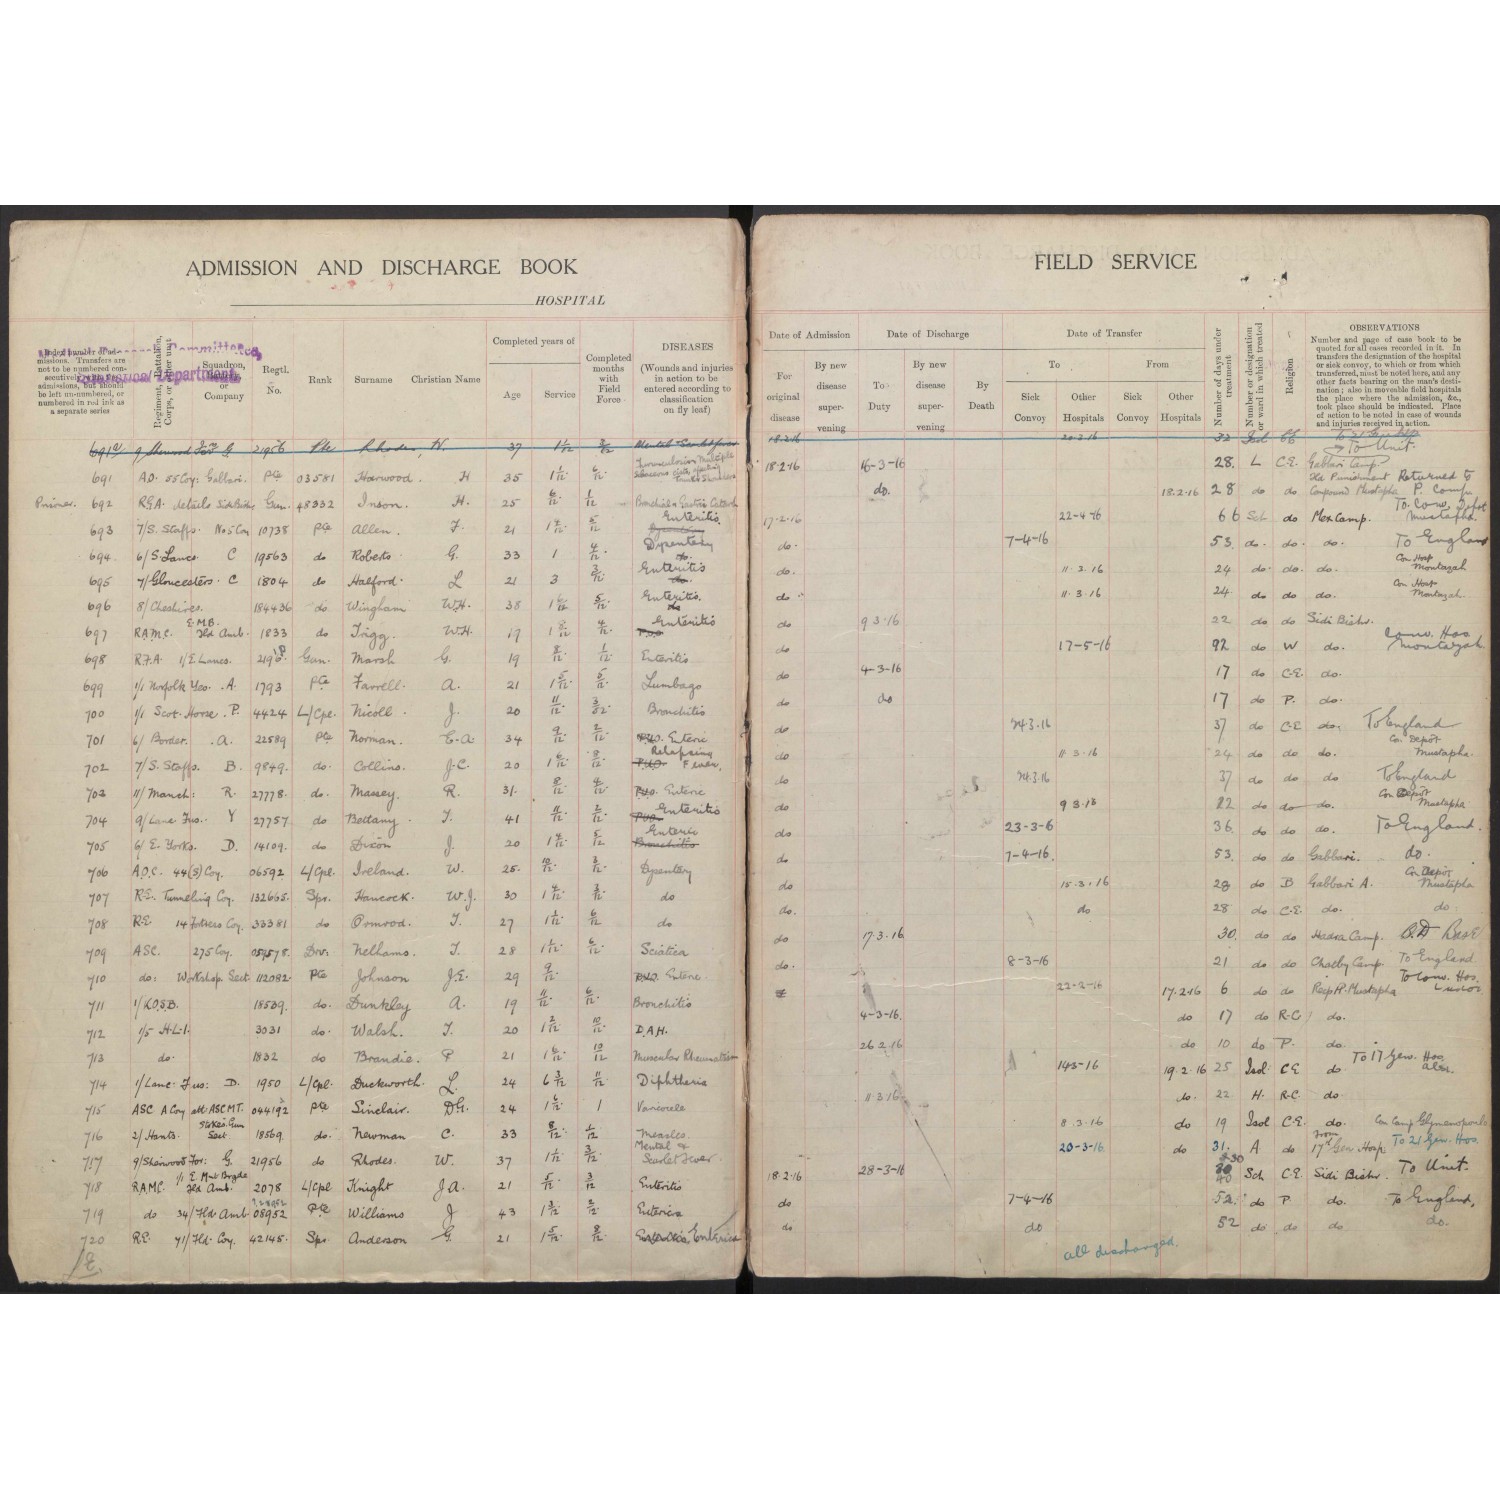 ADMISSION AND DISCHARGE BOOK
HOSPITAL
FIELD SERVICE
Index number of admissions. Transfers are not to be numbered consecutively with the admissions, but should be left un-numbered, or numbered in red ink as a separate series
Regiment, Battalion, Corps, or other unit
Squadron, Battery, or Company
Regtl. No.
Rank
Surname
Christian Name
Completed years of
Age
Service
Completed months with Field Force
DISEASES
(Wounds and injuries in action to be entered according to classification on fly leaf)
Date of Admission
For original disease
By new disease supervening
Date of Discharge
To Duty
By new disease supervening
By Death
Date of Transfer
To
From
Sick Convoy
Other Hospitals
Sick Convoy
Other Hospitals
Number of days under treatment
Number or designation of ward in which treated
Religion
OBSERVATIONS
Number and page of case book to be quoted for all cases recorded in it. In transfers the designation of the hospital or sick convoy, to or from which transferred, must be noted here, and any other facts bearing on the man's destination; also in moveable field hospitals the place where the admission, &c., took place should be indicated. Place of action to be noted in case of wounds and injuries received in action.
691a 9 Sherwood For G. 21956 Pte Rhodes, W. 37 1 1/12 3/12 18.2.16 20.3.16 32 Isol To Unit
691 A.D. 55 Coy: Gabbari. Pte 03581 Harwood H 35 1 1/12 6/12 18.2.16 16-3-16 28. L C.E. Gabbari Camp
692 R.G.A. details Gun. 48332 Inson. H. 25 6/12 1/12 Bronchial & Gastric Catarrh do. 18.2.16 28 do do Compound Mustapha Returned to P. Comp
693 7/S. Staffs. No 5 Coy 10738 Pte Allen. F. 21 1 4/12 5/12 Enteritis 17-2-16 22-4-16 66 Sch do Mex Camp. To Conv. Depot Mustapha
694 6/S. Lancs C 19563 do Roberts G. 33 1 4/12 Dysentery do. 7-4-16 53. do. do. do. To England
695 7/Gloucesters. C 1804 do Halford. L 21 3 3/12 Enteritis do. 11.3.16 24 do. do. do. Con Hosp Montazah
696 8/Cheshires. 184436 do. Wingham W.H. 38 1 6/12 5/12 Enteritis. do 11.3.16 24. do do. do. Con Hosp Montazah
697 R.A.M.C. E.M.B. Fld Amb. 1833 do Trigg. W.H. 19 1 8/12 4/12 Enteritis do 9 3.16 22 do do Sidi Bishr.
698 R.F.A 1/E Lancs. Gun. Marsh G. 19 8/12 1/12 Enteritis do 17-5-16 92 do W do. Conv. Hos Montazah
699 1/1 Norfolk Yeo. A. 1793 Pte Farrell. A. 21 1 5/12 5/12 Lumbago do 4-3-16 17 do C.E. do.
700 1/1 Scot. Horse. P. 4424 L/Cpl. Nicoll. J. 20 11/12 Bronchitis do do 17 do P. do.
701 6/Border. A. 22589 Pte Norman. E.A. 34 9/12 2/12 P.U.O. Enteric do 24.3.16 37 do C.E do. To England
702 7/S. Staffs. B. 9849. do. Collins. J.C. 20 1 6/12 8/12 P.U.O. Relapsing Fever. do 11 3.16 24 do do do. Co. Depôt Mustapha.
703 11/Manch: R. 27778. do. Massey. R. 31. 8/12 4/12 P.U.O. Enteric do 24.3.16 37 do do do To England
704 9/Lanc Fus. Y 27757 do Bottany. T. 41 11/12 2/12 P.U.O. Enteritis do 9 3.16 22 do do do. Con Depôt Mustapha
705 6/E. Yorks. D. 14109. do. Dixon J. 20 1 4/12 5/12 Enteric Bronchitis do 23-3-6 36 do do do. To England.
706 A.O.C. 44(S) Coy. 06592 L/Cpl. Ireland. W. 25. 10/12 3/12 Dysentery do 7-4-16. 53. do do Gabbari. do.
707 R.E. Tunneling Coy. 132665. Spr. Hancock. W.J. 30 1 4/12 3/12 do do 15.3.16 28 do B Gabbari A. Con Depôt Mustapha
708 R.E. 14 Fortress Coy. 33381 do Pomrod. T. 27 1 1/12 6/12 do do. do 28 do C.E. do. do.
709 A.S.C. 275 Coy. Drv. Nelhams. T. 28 1 1/12 6/12 Sciatica do 17.3.16 30. do do Hadra Camp. Base
710 do: Workshop Sect. 112082. Pte Johnson J.E. 29 9/12 P.U.O. Enteric do. 8-3-16 21 do do Chatby Camp. To England
711 1/K.O.S.B. 18539. do. Dunkley A. 19 11/12 6/12 Bronchitis 22-2-16 17.2.16 6 do do Mustapha To Conv. Hos. Luxor
712 1/5 H.L.I. 3031 do. Walsh. T. 20 1 2/12 10/12 D.A.H. 4-3-16. do 17 do R.C do.
713 do. 1832 do Brandie. P 21 1 6/12 10/12 Muscular Rheumatism 26 2 16 do 10 do P. do.
714 1/Lanc. Fus: D. 1950 L/Cpl. Duckworth. L. 24 6 3/12 11/12 Diphtheria 14.3-16 19.2.16 25 Isol. C.E do To 17 Gen. Hos. Alex.
715 A.S.C. A Coy att: ASC MT. Pte Sinclair. D.G. 24 1 6/12 1 Varicocele 11.3.16 do. 22 H. R.C. do.
716 2/Hants. Stokes Gun Sect. 18569. do. Newman C. 33 8/12 1/12 Measles. 8.3.16 do 19 Isol C.E. do. Con Camp
717 9/Sherwood For: G. 21956 do Rhodes. W. 37 1 1/12 3/12 Mental & Scarlet Fever. 20-3-16 do 31. A do From 17th Gen. Hosp To 21 Gen. Hos.
718 R.A.M.C. 1/1 E. Mnt Brgde Fld Amb. 2078 L/Cpl Knight J.A. 21 5/12 3/12 Enteritis 18.2.16 28-3-16 40 Sch C.E. Sidi Bishr. To Unit.
719 do 34/Fld Amb 08952 Pte Williams J 43 1 3/12 2/12 Enterica do 7-4-16 52. do P. do. To England,
720 R.E. 71/Fld. Coy. 42145. Spr. Anderson G. 21 1 5/12 8/12 Enterica do do 52 do do do do.
all discharged.